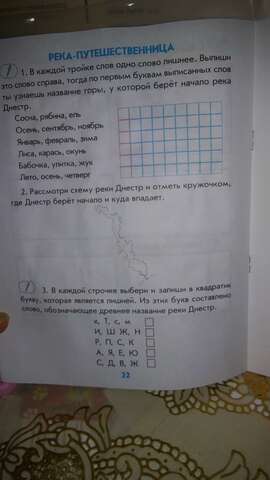 РЕКА-ПУТЕШЕСТВЕННИЦА
1. В каждой тройке слов одно слово лишнее. Выпиши
это слово справа, тогда по первым буквам выписанных слов
ты узнаешь название горы, у которой берёт начало река
Днестр.
Сосна, рябина, ель
Осень, сентябрь, ноябрь
Январь, февраль, зима
Лиса, карась, окунь
Бабочка, улитка, жук
Лето, осень, четверг
2. Рассмотри схему реки Днестр и отметь кружочком,
где Днестр берёт начало и куда впадает.
3. В каждой строчке выбери и запиши в квадратик
букву, которая является лишней. Из этих букв составлено
слово, обозначающее древнее название реки Днестр.
к, Т, с, м
И, Ш, Ж, Н
Р, П, С, К
А, Я, Е, Ю
С, Д, В, Ж
22